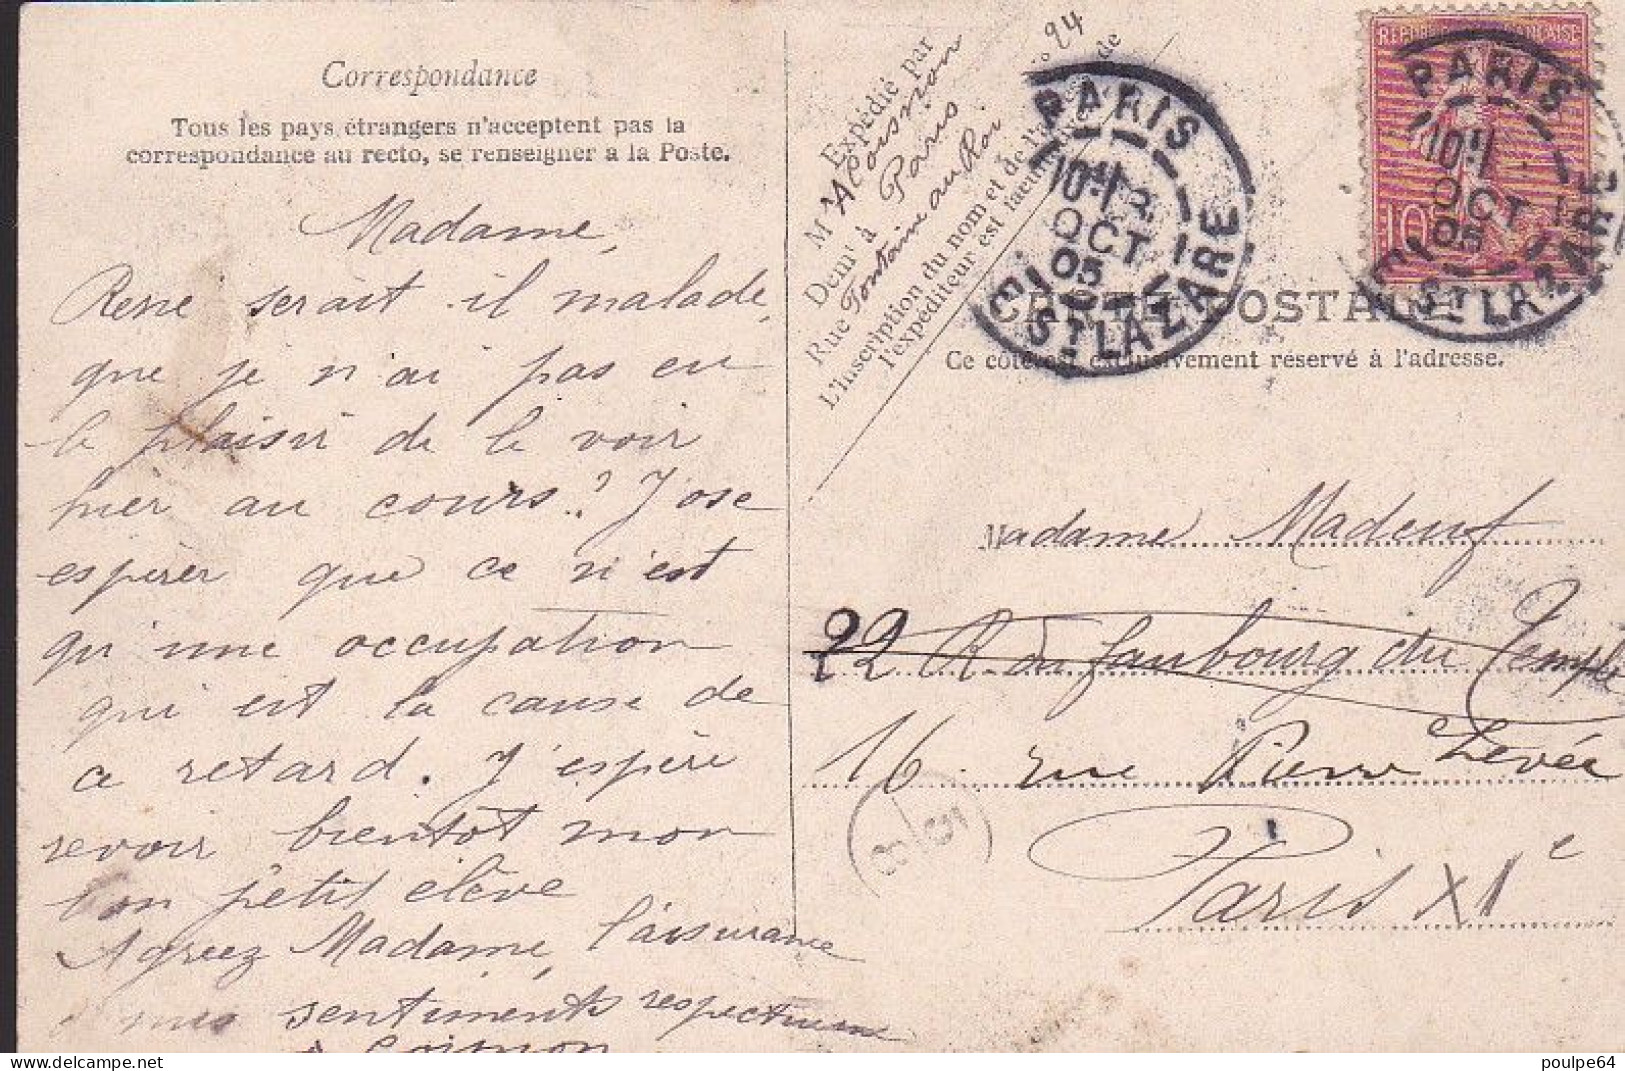 Correspondance
Tous les pays étrangers n'acceptent pas la
correspondance au recto, se renseigner à la Poste.
Madame,
René serait il malade,
que je n'ai pas eu
le plaisir de le voir
hier au cours? J'ose
espérer que ce n'est
qu'une occupation
qui est la cause de
ce retard. J'espère
revoir bientôt mon
bon petit élève
Agréez Madame, l'assurance
mes sentiments respectueux
Coismon
Expédié par
M A Coismon
Demt à Paris
Rue Fontaine au Roi n° 24
L'inscription du nom et de l'adresse de
l'expéditeur est facultative
PARIS
10
2
OCT
05
ST LAZARE
REPUBLIQUE FRANÇAISE
10
PARIS
10
OCT
05
ST LAZARE
CARTE POSTALE
Ce côté est exclusivement réservé à l'adresse.
Madame Madeuf
22 R du faubourg du Temple
16 rue Pierre Levée
Paris XIe
poulpe64